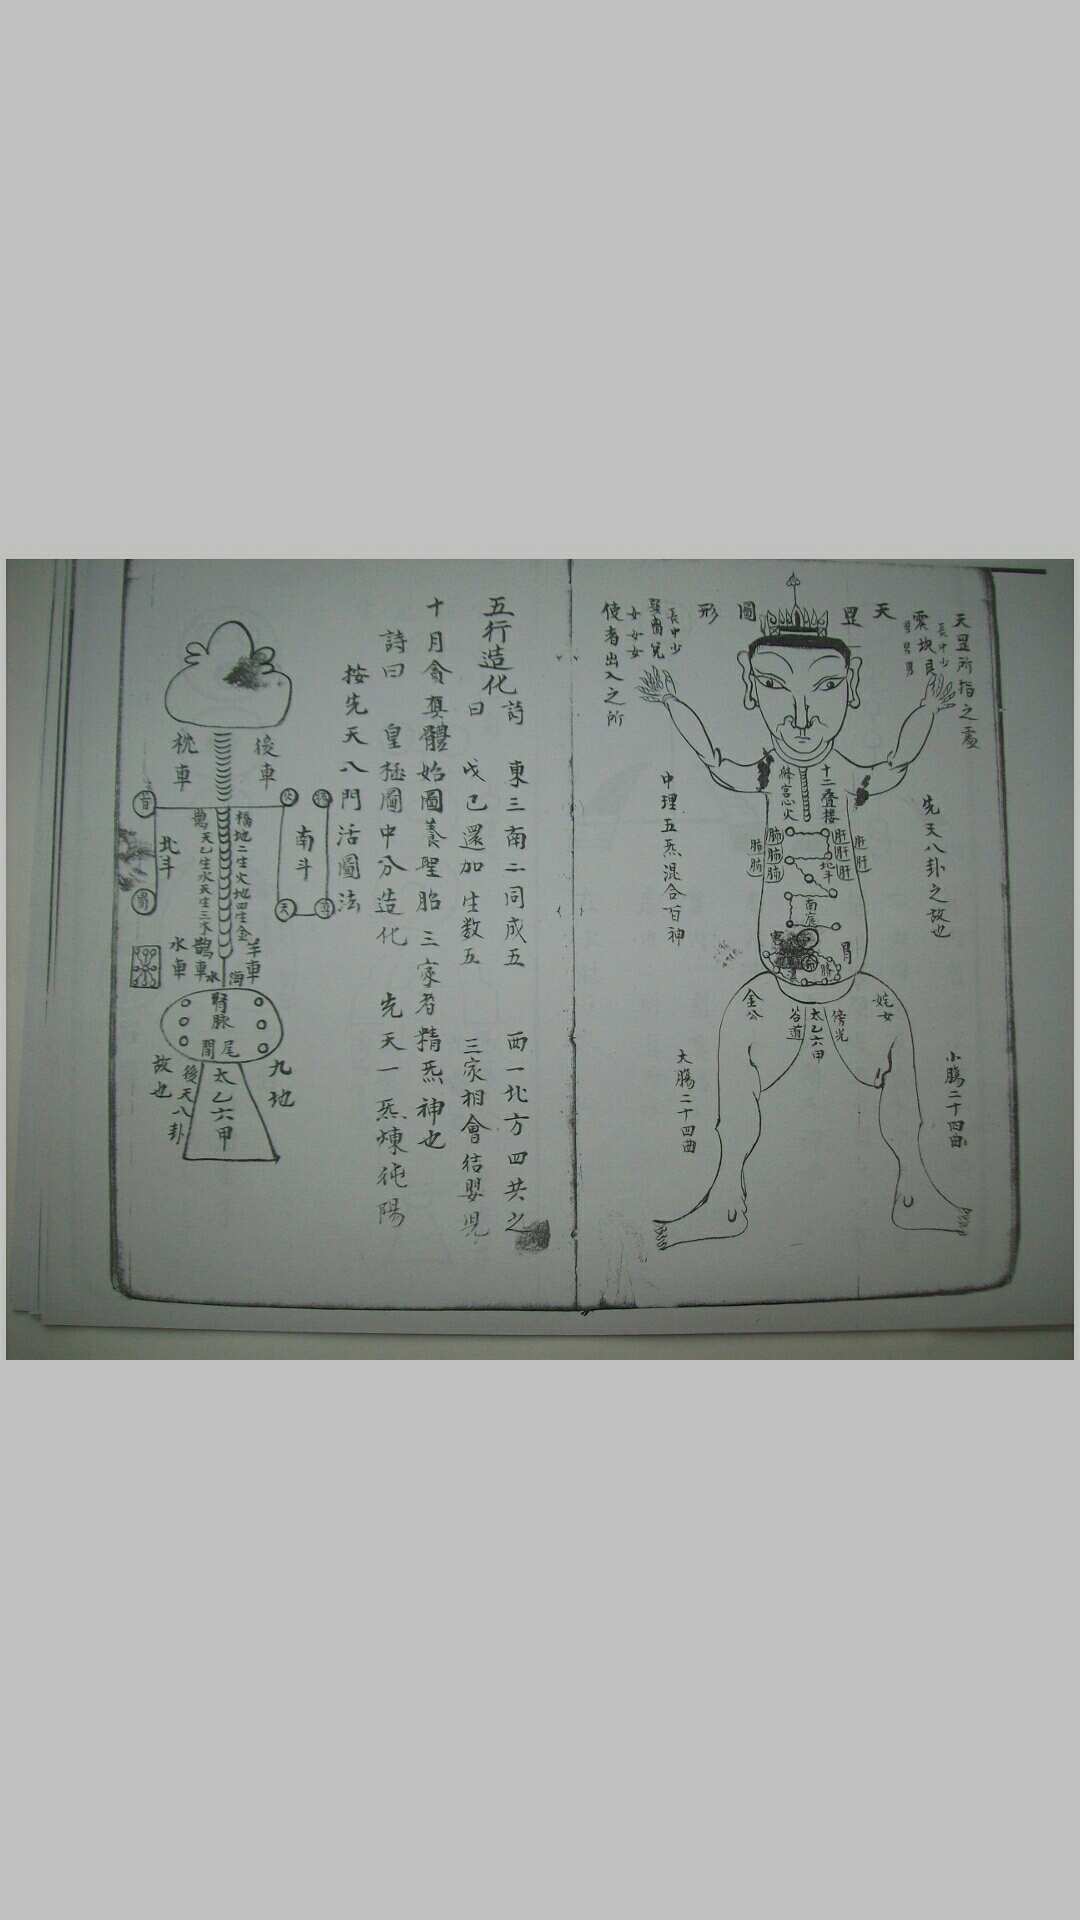 天罡所指之處
震坎艮
長中少
男男男
天罡圖形
長中少
巽離兌
女女女
使者出入之所
先天八卦之故也
中理五炁混合百神
十二叠樓
絳宮心火
肺肺肺
肺肺
肝肝肝
肝肝
北斗
南宸
胃
金公
姹女
谷道
太乙六甲
傍光
大腸二十四曲
小腸二十四曲
五行造化詩曰
東三南二同成五 西一北方四共之
戊己還加生數五 三家相會結嬰兒
十月貪奠體始圖養聖胎 三家者精炁神也
詩曰 皇極圖中分造化 先天一炁煉純陽
按先天八門活圖法
後車
枕車
南斗
北斗
天
橋地二生火地四生金
鵲天乙生水天生三木
羊車
鵲車
水車
水海
腎脉
尾閭
九地
太乙六甲
後天八卦
故也